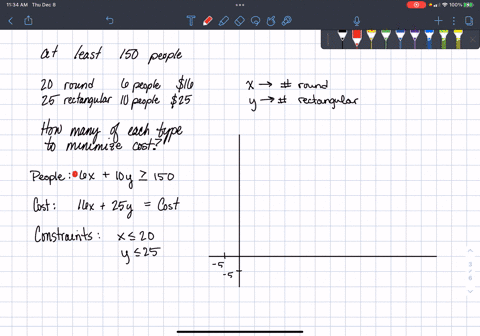 11:34 AM Thu Dec 9
100%
At least 150 people
20 round 6 people $16
25 rectangular 10 people $25
How many of each type
to minimize cost?
People: 6x + 10y ≥ 150
Cost: 16x + 25y = Cost
Constraints: x ≤ 20
y ≤ 25
x → # round
y → # rectangular
-5
-5